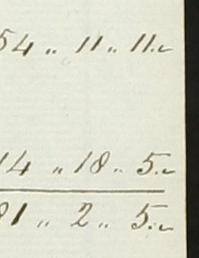 54 " 11 " 11.
14 " 18 " 5.
81 " 2 " 5.